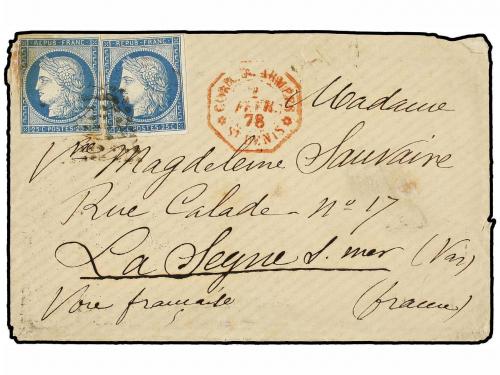 REPUB·FRANC· REPUB·FRANC·
25 C·POSTES·25 C· POSTES·25C·
CORR. D. ARMEES
2
FEVR.
78
ST DENIS
Madame
Vve Magdeleine Sauvaire
Rue Calade - No 17
La Seyne s. mer (Var)
Voie française (france)